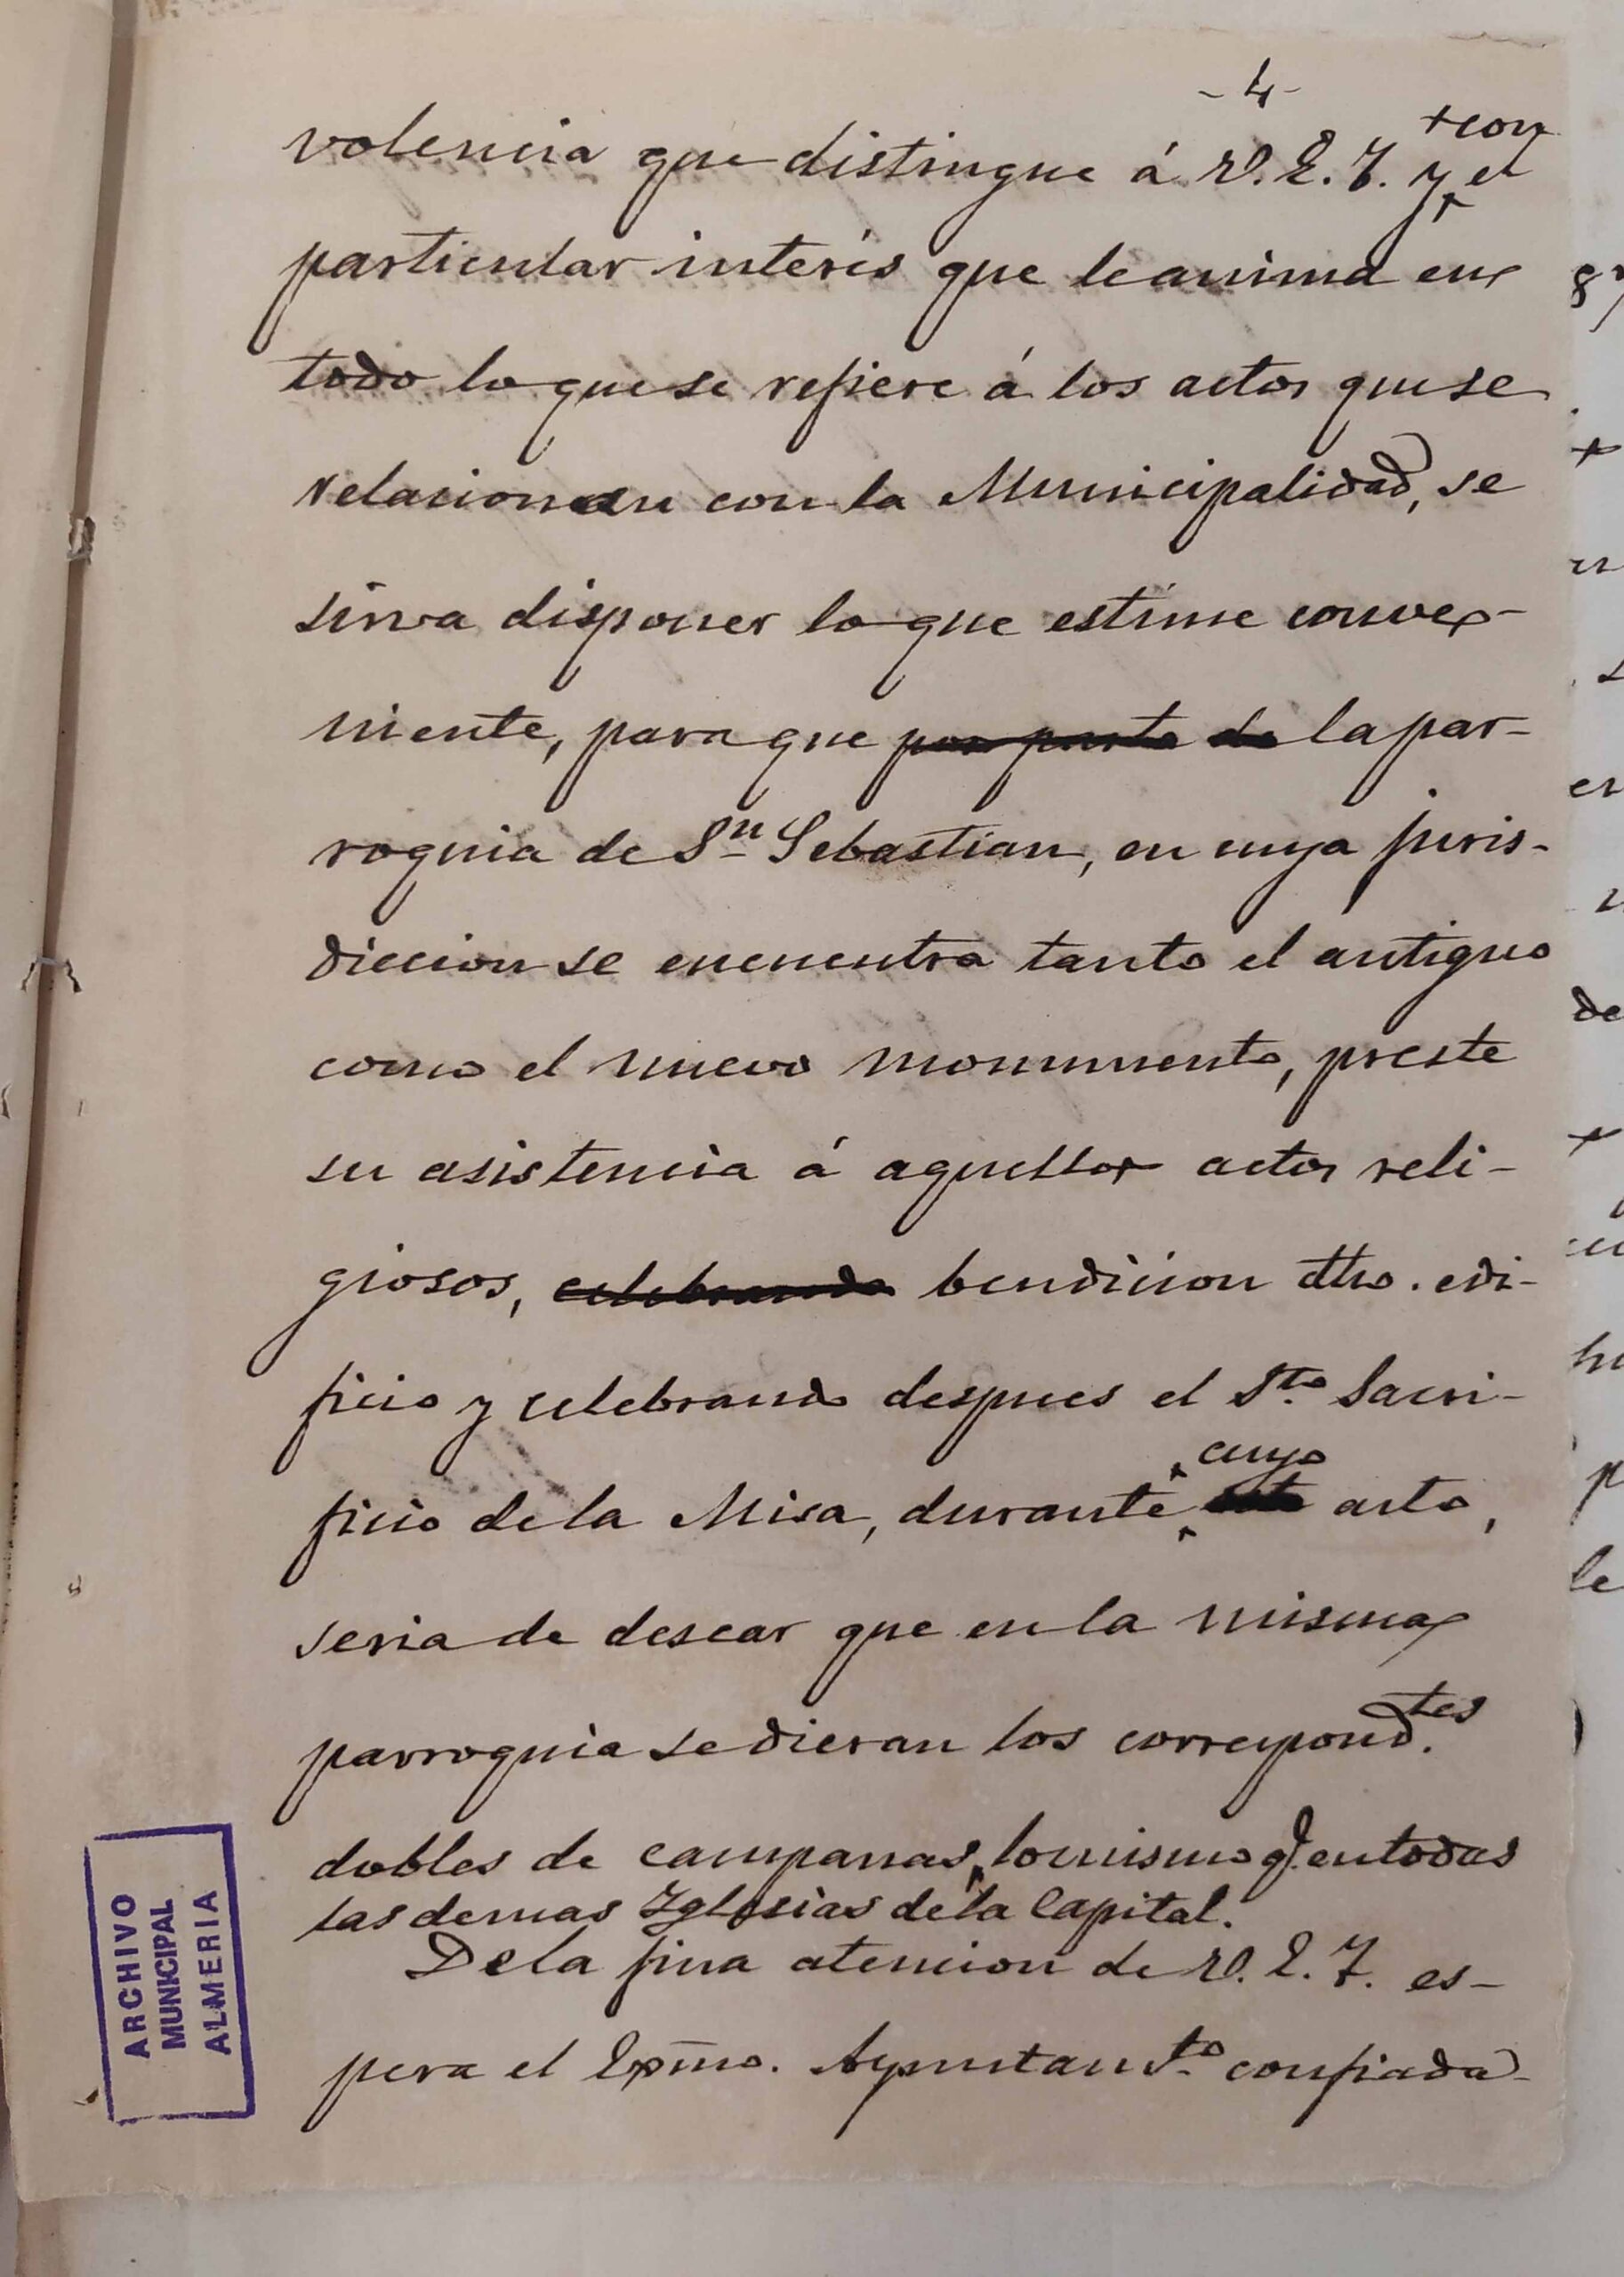 - 4 -
+con
volencia que distingue á V. E. I. y el
particular interés que le anima en
todo lo que se refiere á los actos que se
relacionan con la Municipalidad, se
sirva disponer lo que estime conve-
niente, para que por parte de la par-
roquia de Sn Sebastian, en cuya juris-
diccion se encuentra tanto el antiguo
como el nuevo monumento, preste
su asistencia á aquellos actos reli-
giosos, celebrando bendicion dho. edi-
ficio y celebrando despues el Sto. Sacri-
cuyo
ficio de la Misa, durante este acto,
seria de desear que en la misma
parroquia se dieran los correspond.tes
dobles de campanas, lo mismo q. en todas
las demas Iglesias de la Capital.
De la fina atencion de V. E. I. es-
pera el Exmo. Ayuntamto. confiada-
ARCHIVO
MUNICIPAL
ALMERIA